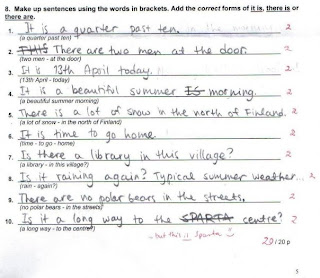 8. Make up sentences using the words in brackets. Add the correct forms of it is, there is or
there are.
1. It is a quarter past ten. 2
(a quarter past ten)
2. THIS There are two men at the door. 2
(two men - at the door)
3. It is 13th April today. 2
(13th April - today)
4. It is a beautiful summer IS morning. 2
(a beautiful summer morning)
5. There is a lot of snow in the north of Finland. 2
(a lot of snow - in the north of Finland)
6. It is time to go home. 2
(time - to go - home)
7. Is there a library in this village? 2
(a library - in this village?)
8. Is it raining again? Typical summer weather... 2
(rain - again?)
9. There are no polar bears in the streets. 2
(no polar bears - in the streets)
10. Is it a long way to the SPARTA centre? 2
(a long way - to the centre?)
- but this is Sparta
20 / 20 p
5